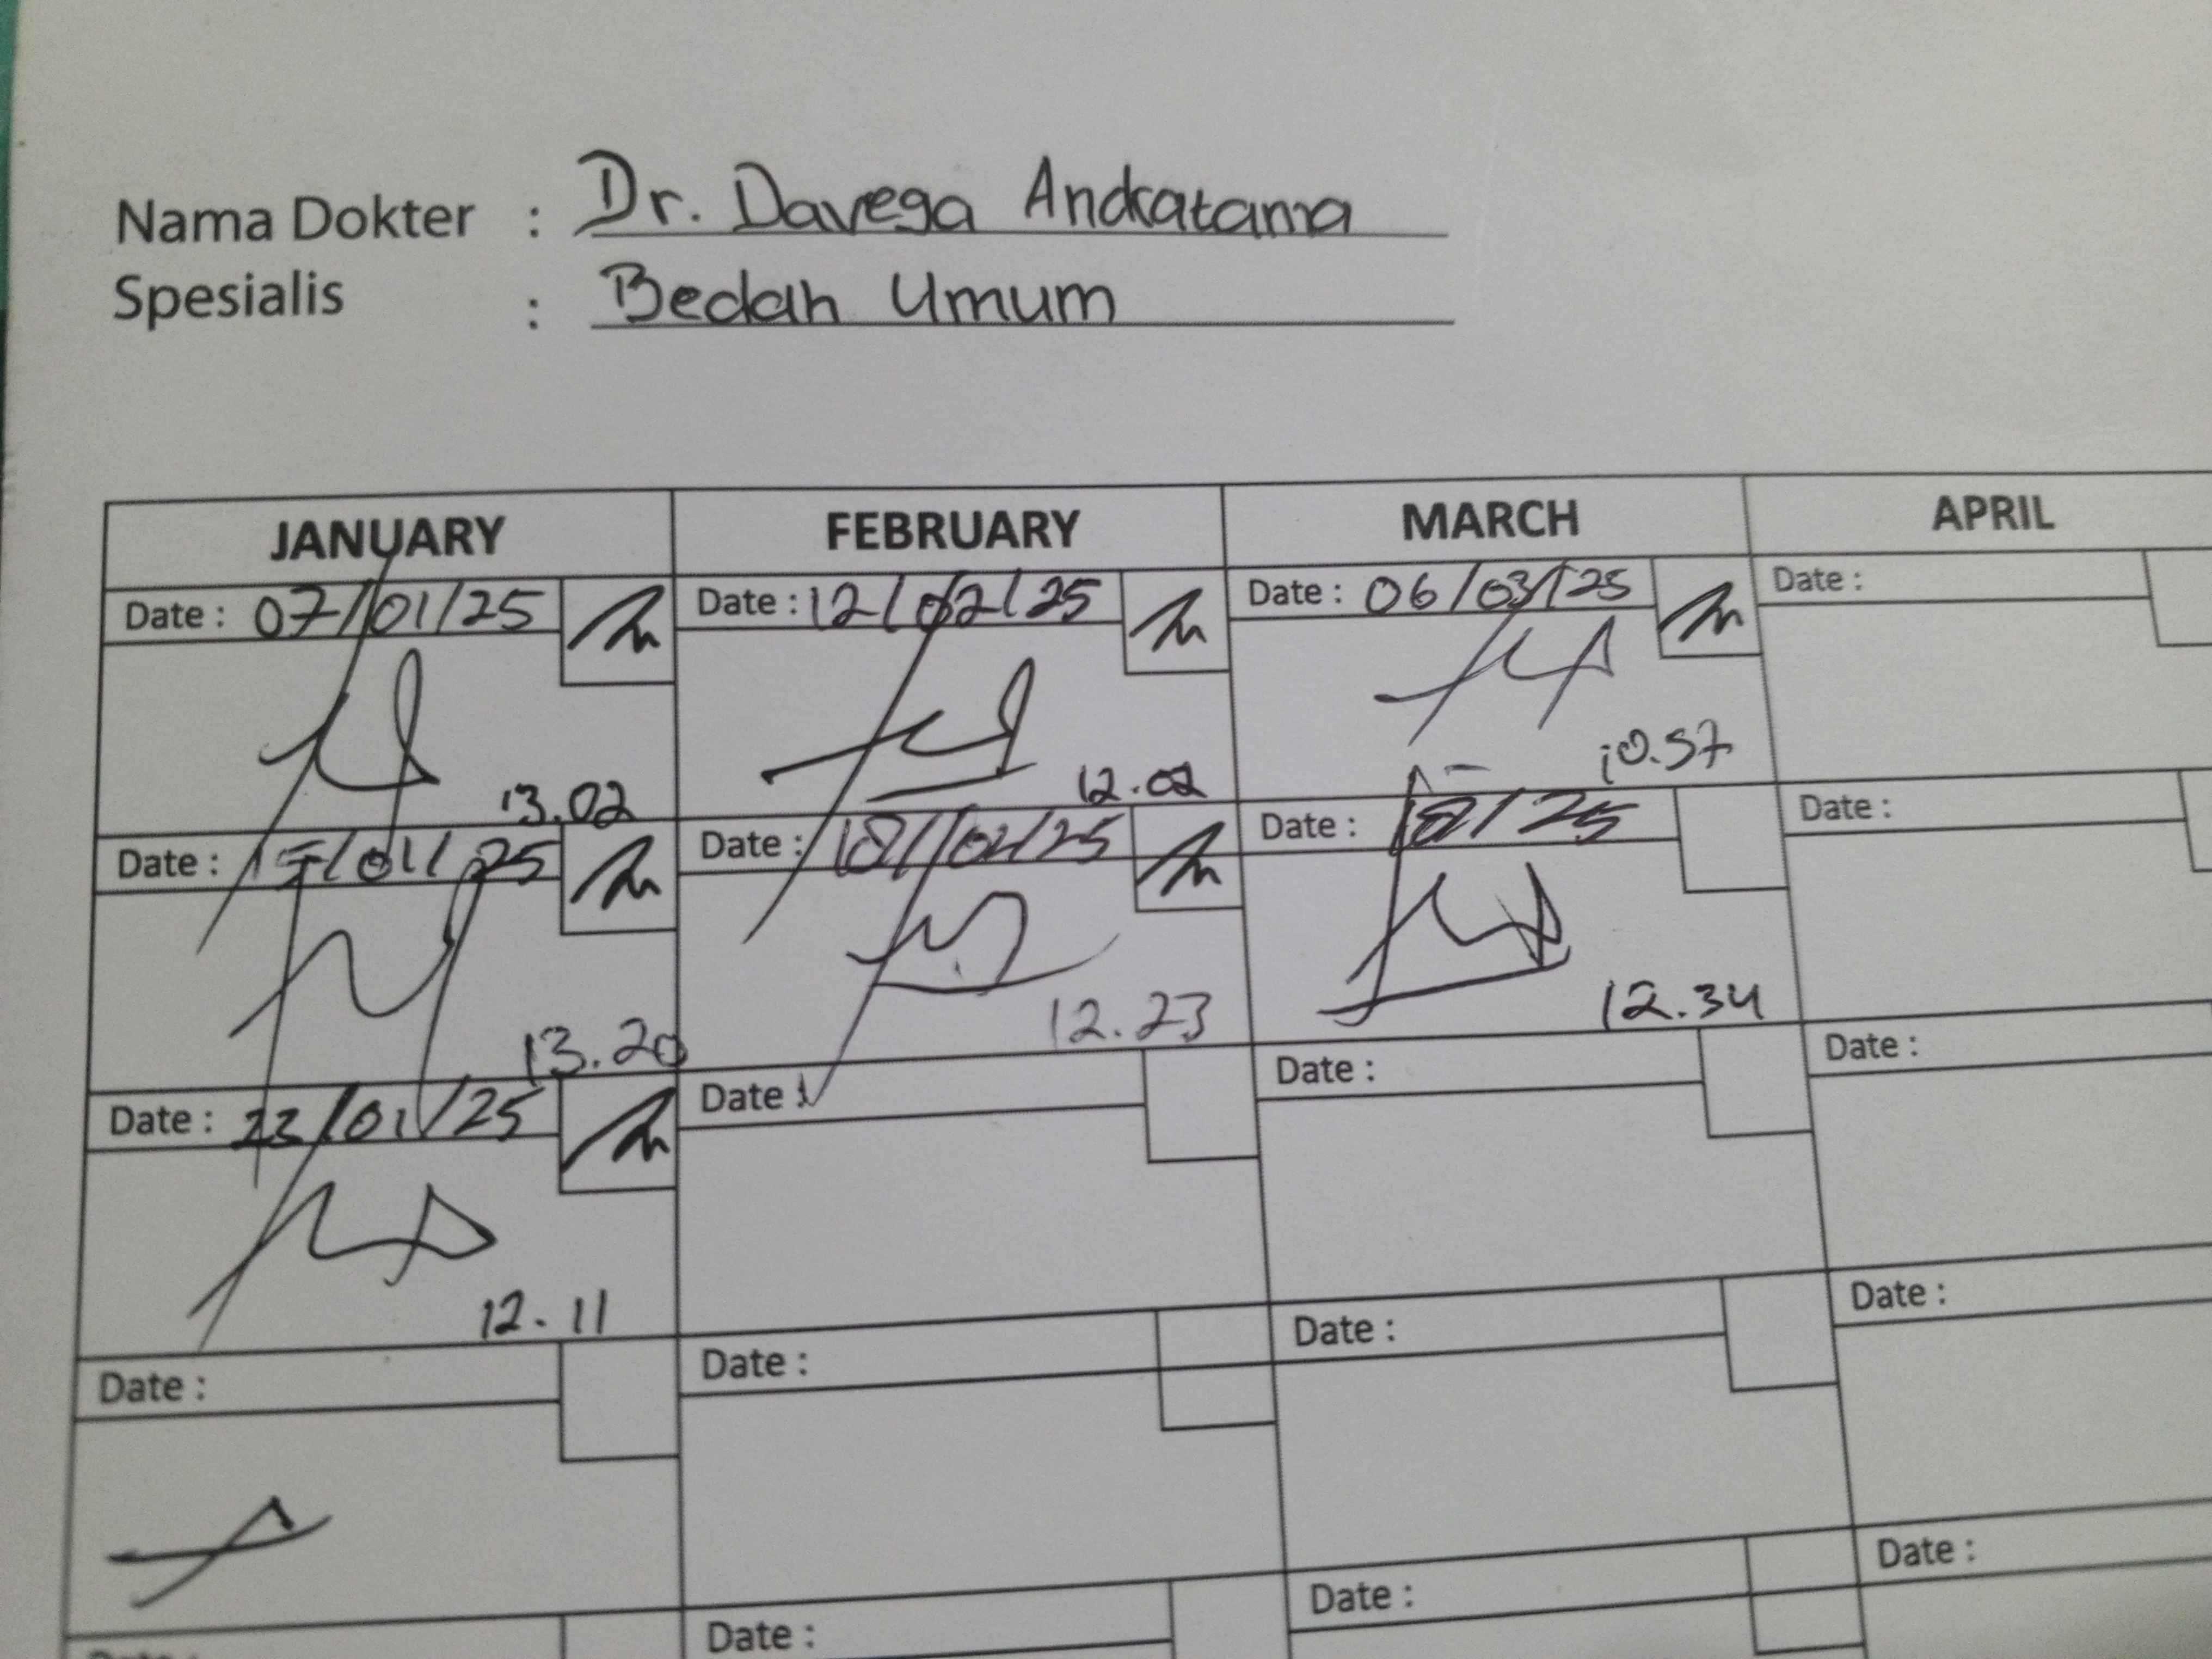 Nama Dokter : Dr. Davega Andratama
Spesialis : Bedah Umum
JANUARY FEBRUARY MARCH APRIL
Date : 07/01/25 Date : 12/02/25 Date : 06/03/25 Date :
13.02 12.02 10.57
Date : 15/01/25 Date : 18/02/25 Date : 18/25 Date :
13.20 12.23 12.34
Date : 23/01/25 Date : Date : Date :
12.11
Date : Date : Date : Date :
Date : Date : Date :